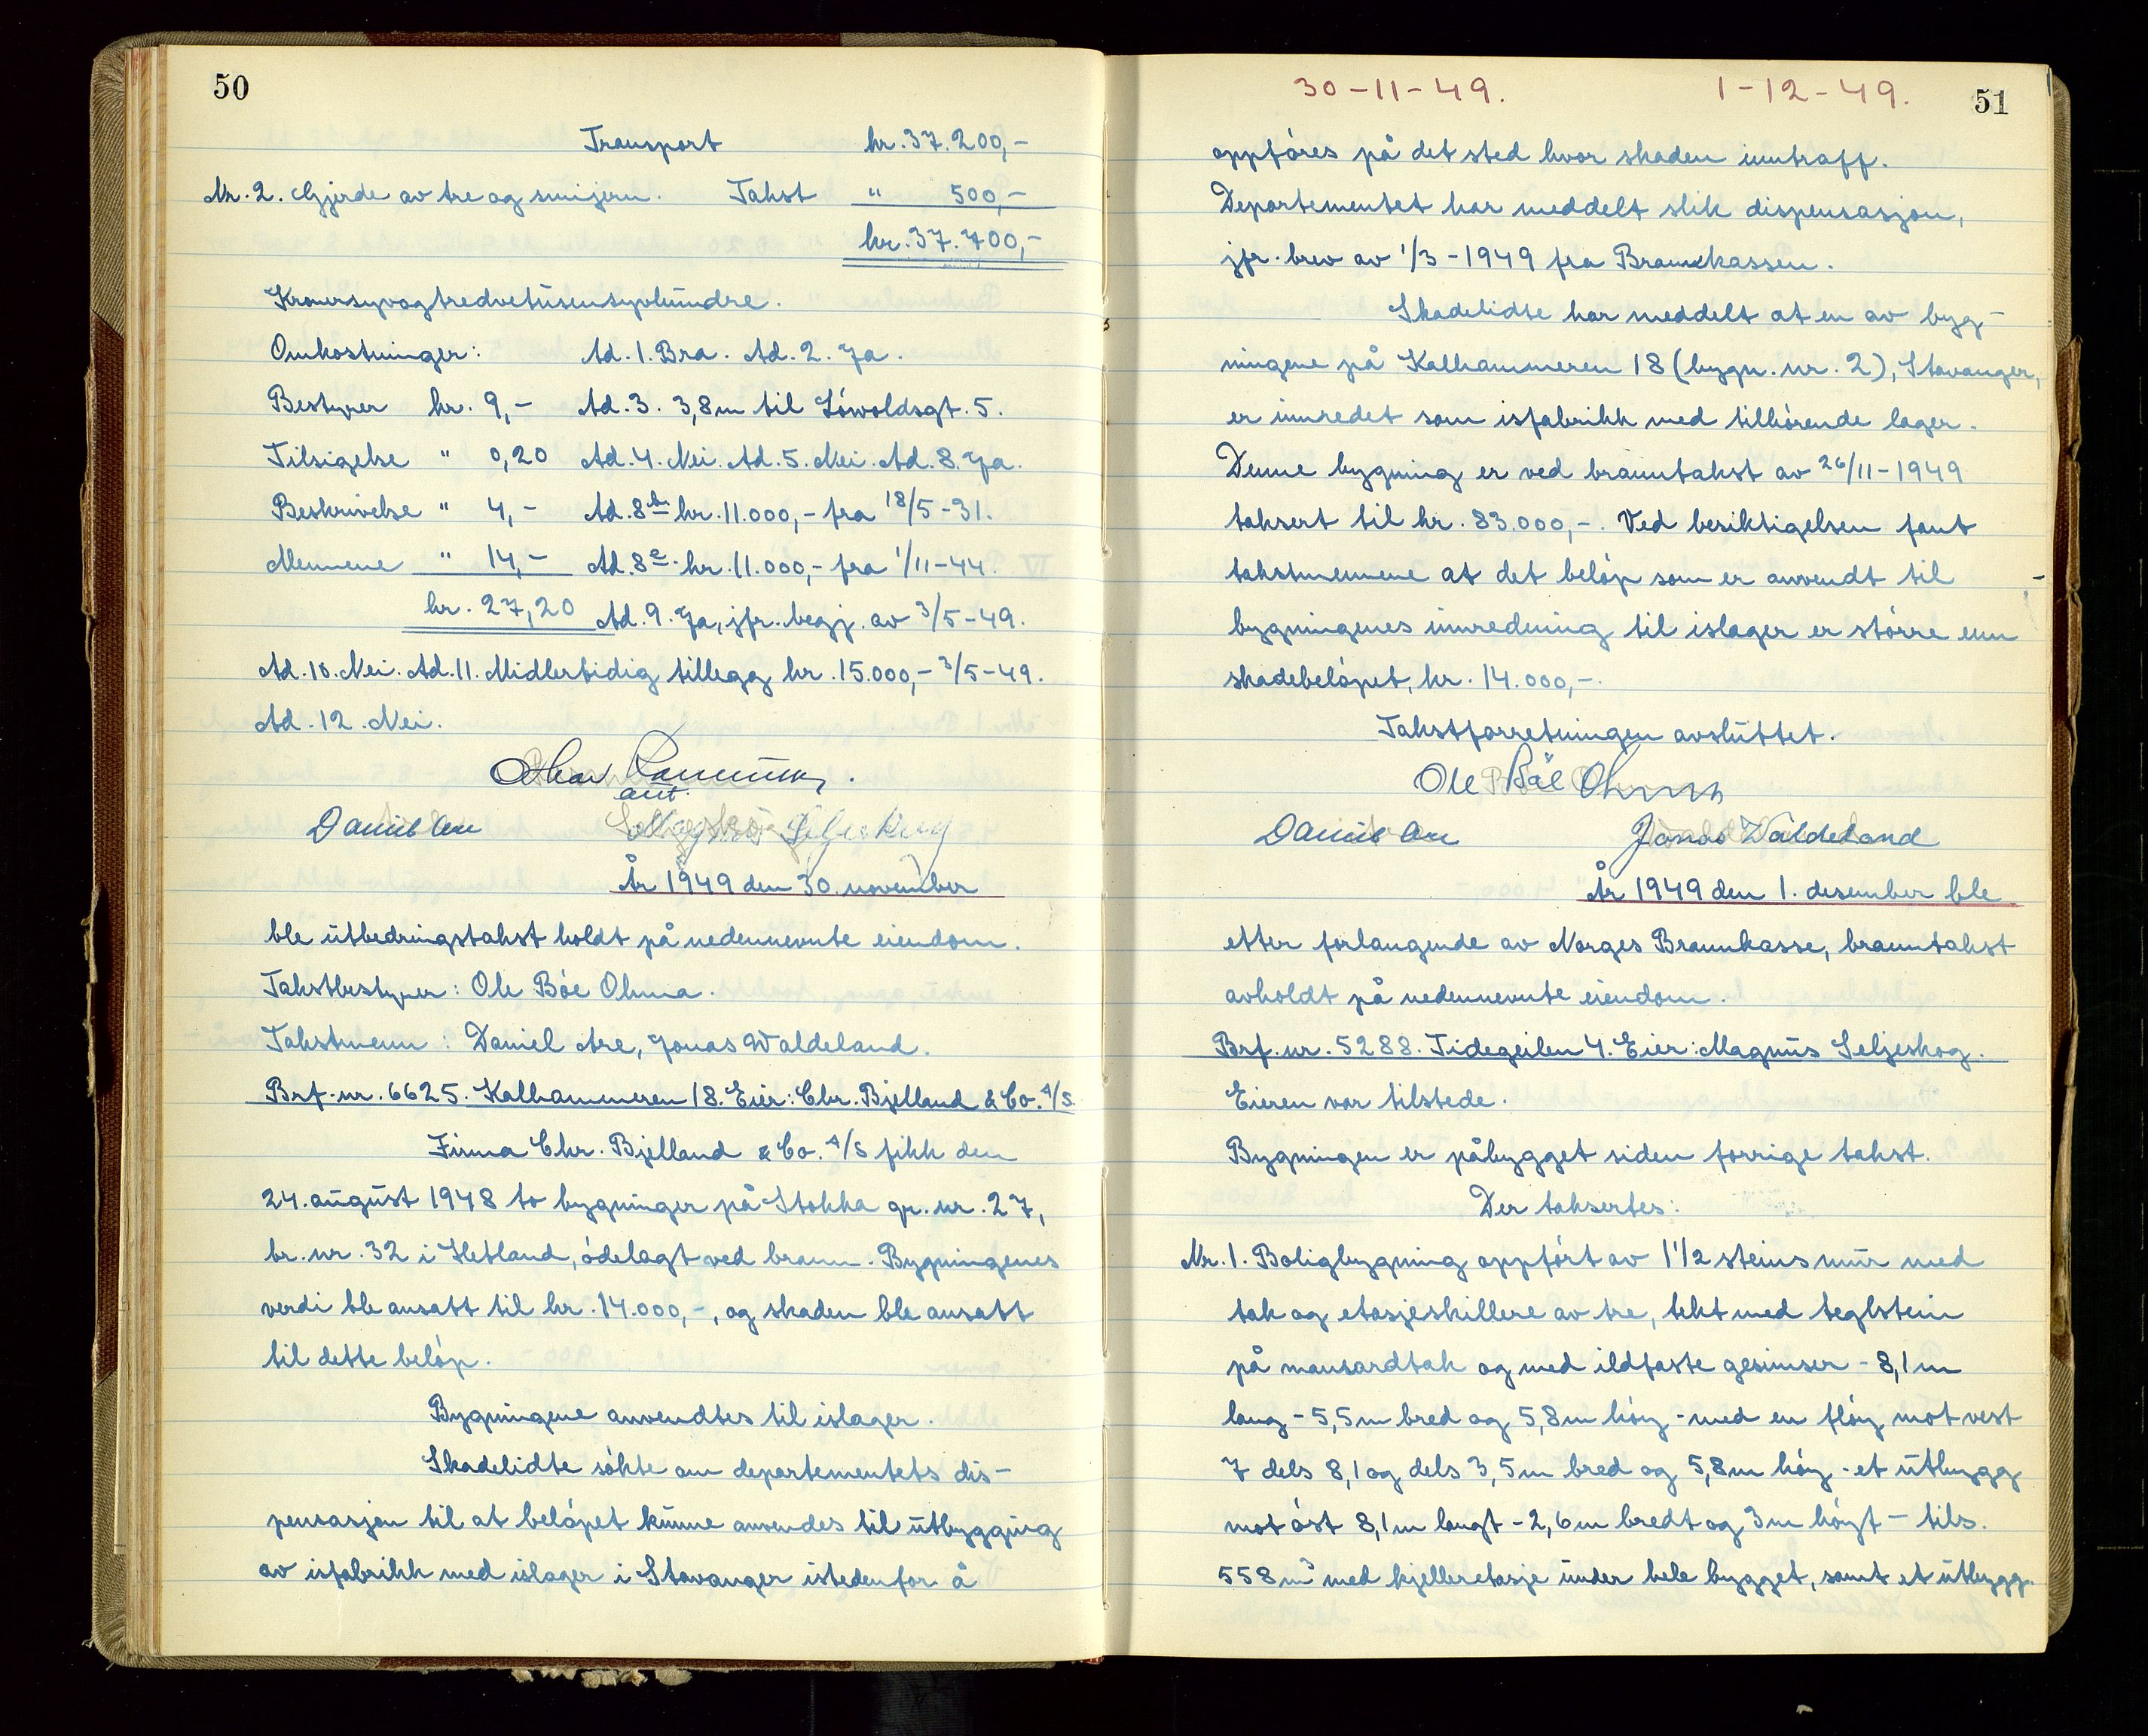 50
Transport kr. 37.200,-
Nr. 2. Gjerde av tre og smijern. Takst " 500,-
kr. 37.700,-
Kronersyvogtredvetusensyvhundre.
Omkostninger: Ad. 1. Bra. Ad. 2. Ja.
Bestyrer kr. 9,- Ad. 3. 3,8m til Løwoldsgt. 5.
Tilsigelse " 0,20 Ad. 4. Nei. Ad. 5. Nei. Ad. 8. Ja.
Beskrivelse " 4,- Ad. 8b kr. 11.000,- fra 18/5-31.
Mennene " 14,- Ad. 8e kr. 11.000,- fra 1/11-44.
kr. 27,20 Ad. 9. Ja, jfr. begj. av 3/5-49.
Ad. 10. Nei. Ad. 11. Midlertidig tillegg kr. 15.000,- 3/5-49.
Ad. 12. Nei.
aut.
Daniel Are
År 1949 den 30. november
ble utbedringstakst holdt på nedennevnte eiendom.
Takstbestyrer: Ole Bøe Ohma.
Takstmenn: Daniel Are, Jonas Waldeland.
Brf. nr. 6625. Kalhammeren 18. Eier: Chr. Bjelland & Co. A/S
Firma Chr. Bjelland & Co. A/S fikk den
24. august 1948 to bygninger på Stokka gr. nr. 27,
br. nr. 32 i Hetland, ødelagt ved brann. Bygningenes
verdi ble ansatt til kr. 14.000,-, og skaden ble ansatt
til dette beløp.
Bygningene anvendtes til islager.
Skadelidte søkte om departementets dis-
pensasjon til at beløpet kunne anvendes til utbygging
av isfabrikk med islager i Stavanger istedenfor å
30-11-49. 1-12-49. 51
oppføres på det sted hvor skaden inntraff.
Departementet har meddelt slik dispensasjon,
jfr. brev av 1/3-1949 fra Brannkassen.
Skadelidte har meddelt at en av byg-
ningene på Kalhammeren 18 (bygn. nr. 2), Stavanger,
er innredet som isfabrikk med tilhørende lager.
Denne bygning er ved branntakst av 26/11-1949
taksert til kr. 83.000,-. Ved besiktigelsen fant
takstmennene at det beløp som er anvendt til
bygningenes innredning til islager er større enn
skadebeløpet, kr. 14.000,-.
Takstforretningen avsluttet.
Ole Bøe Ohma
Daniel Are Jonas Waldeland
År 1949 den 1. desember ble
etter forlangende av Norges Brannkasse, branntakst
avholdt på nedennevnte eiendom.
Brf. nr. 5288. Tidegeilen 4. Eier: Magnus Seljeskog.
Eieren var tilstede.
Bygningen er påbygget siden forrige takst.
Der taksertes:
Nr. 1. Boligbygning oppført av 1 1/2 steins mur med
tak og etasjeskillere av tre, tekt med teglstein
på mansardtak og med ildfaste gesimser - 8,1m
lang - 5,5m bred og 5,8m høy - med en fløy mot vest
7 dels 8,1 og dels 3,5m bred og 5,8m høy - et utbygg
mot øst 8,1m langt - 2,6m bredt og 3m høyt - tils.
558 m³ med kjelleretasje under hele bygget, samt et utbygg